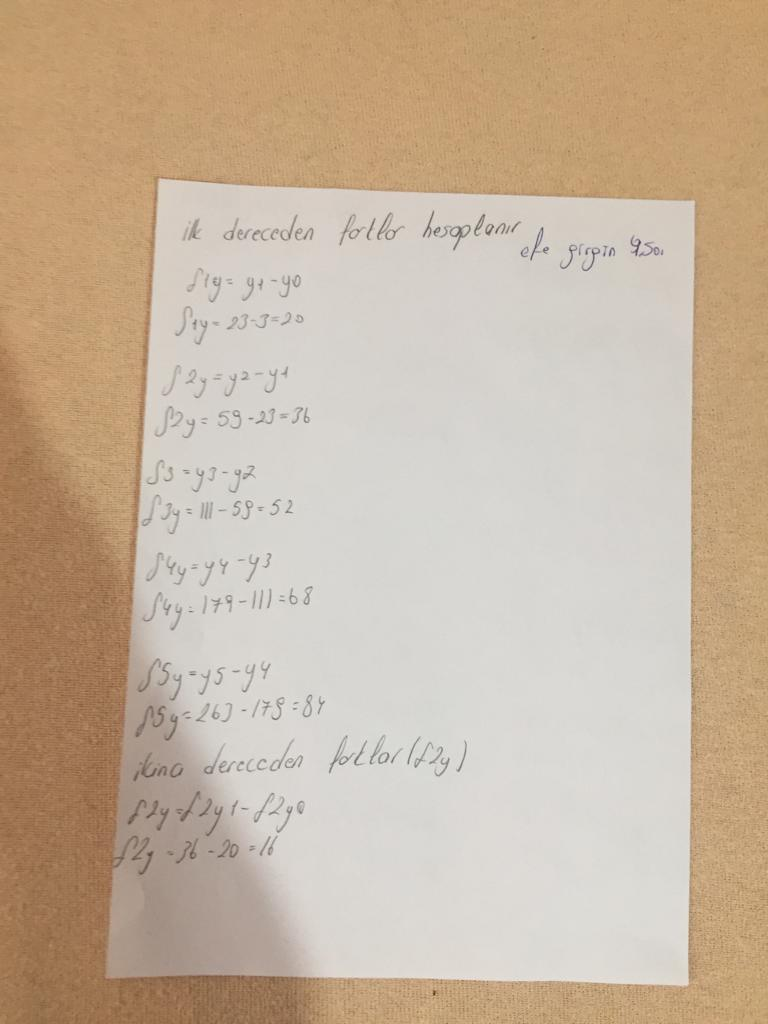 ilk dereceden farklar hesaplanır
efe girgin 950.
f1y = y1 - y0
f1y = 23-3=20
f2y = y2 - y1
f2y = 59 - 23 = 36
f3 = y3 - y2
f3y = 111 - 59 = 52
f4y = y4 - y3
f4y = 179 - 111 = 68
f5y = y5 - y4
f5y = 263 - 179 = 84
ikinci dereceden farklar (f2y)
f2y = f2y1 - f2y0
f2y = 36 - 20 = 16